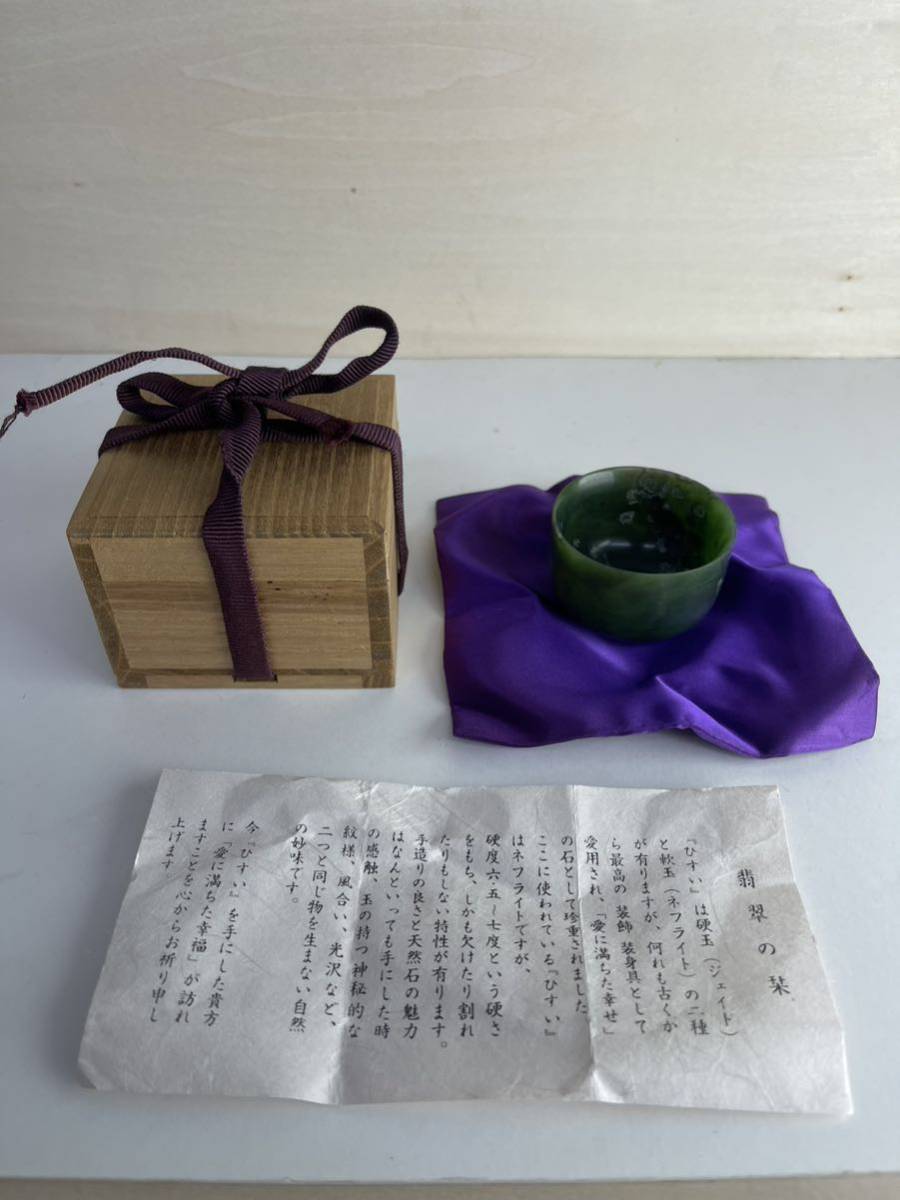 翡翠の栞
『ひすい』は硬玉（ジェイド）
と軟玉（ネフライト）の二種
が有りますが、何れも古くか
ら最高の装飾装身具として
愛用され、「愛に満ちた幸せ」
の石として珍重されました
ここに使われている『ひすい』
はネフライトですが、
硬度六・五～七度という硬さ
をもち、しかも欠けたり割れ
たりもしない特性が有ります。
手造りの良さと天然石の魅力
はなんといっても手にした時
の感触、玉の持つ神秘的な
紋様、風合い、光沢など、
二つと同じ物を生まない自然
の妙味です。
今『ひすい』を手にした貴方
に「愛に満ちた幸福」が訪れ
ますことを心からお祈り申し
上げます